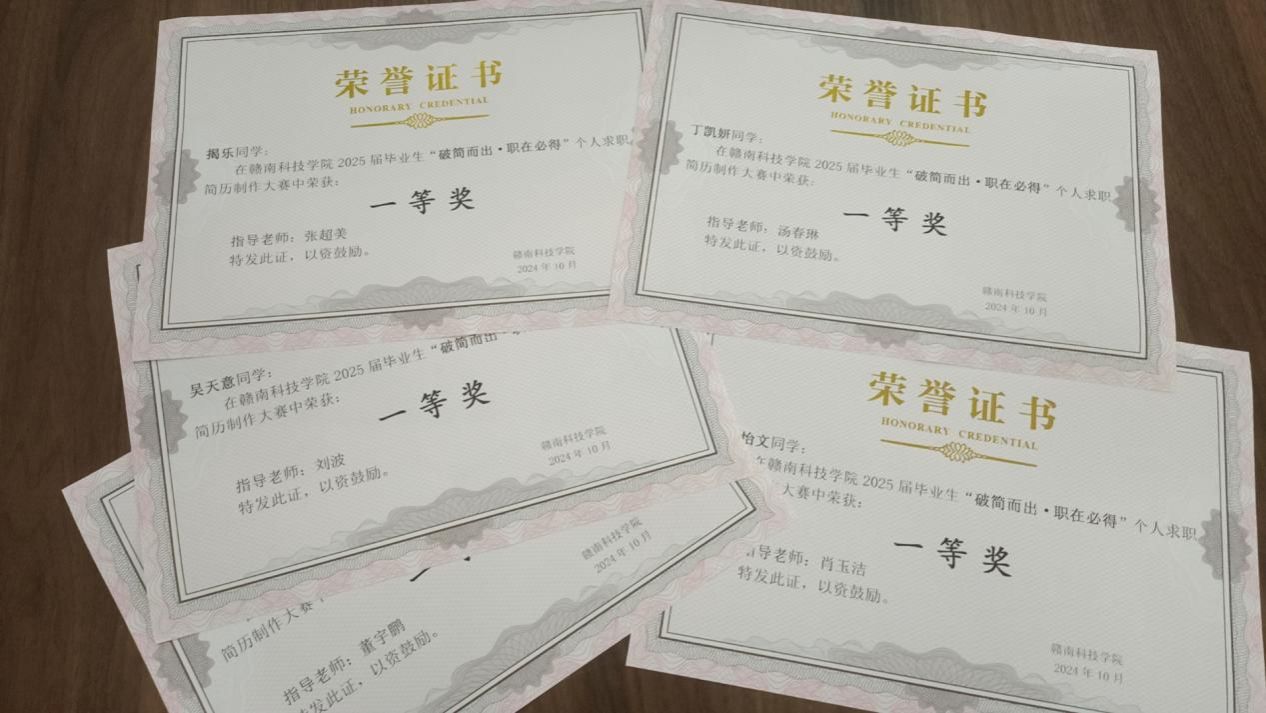 荣誉证书
HONORARY CREDENTIAL
揭乐同学：
在赣南科技学院 2025 届毕业生“破简而出·职在必得”个人求职
简历制作大赛中荣获：
一等奖
指导老师：张超美
特发此证，以资鼓励。
赣南科技学院
2024 年 10 月
荣誉证书
HONORARY CREDENTIAL
丁凯妍同学：
在赣南科技学院 2025 届毕业生“破简而出·职在必得”个人求职
简历制作大赛中荣获：
一等奖
指导老师：汤春琳
特发此证，以资鼓励。
赣南科技学院
2024 年 10 月
吴天意同学：
在赣南科技学院 2025 届毕业生“破简而出·
简历制作大赛中荣获：
一等奖
指导老师：刘波
特发此证，以资鼓励。
赣南科技学院
2024 年 10 月
荣誉证书
HONORARY CREDENTIAL
怡文同学：
在赣南科技学院 2025 届毕业生“破简而出·职在必得”个人求职
大赛中荣获：
一等奖
指导老师：肖玉洁
特发此证，以资鼓励。
赣南科技学院
2024 年 10 月
简历制作大赛
指导老师：董宇鹏
发此证，以资鼓励。
赣南科技学院
2024 年 10 月